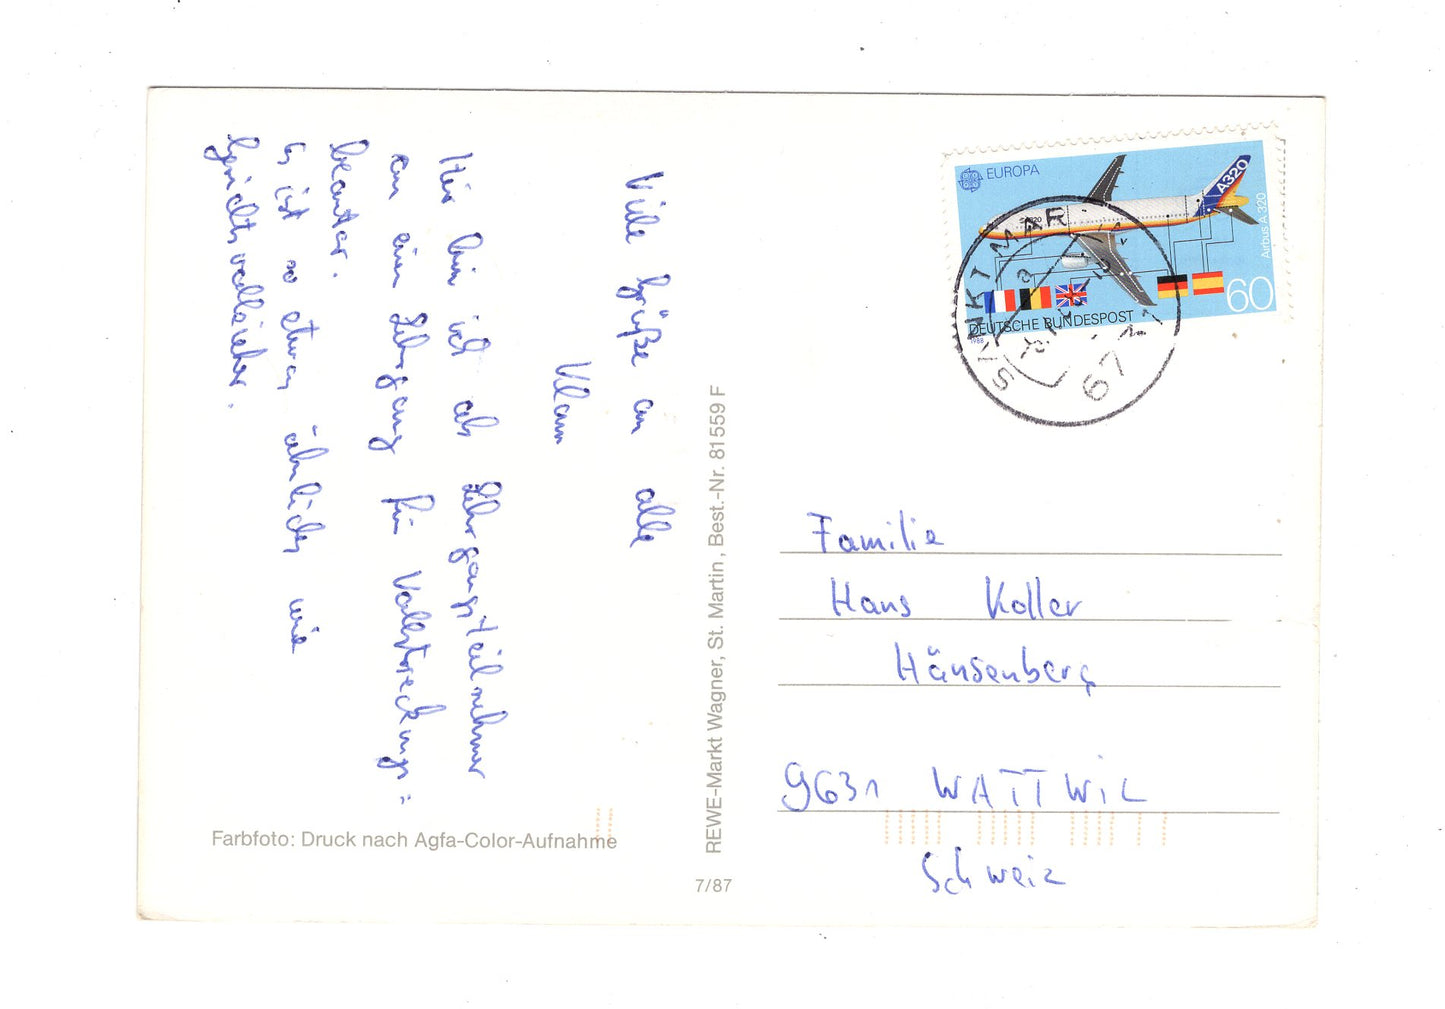 Viele Grüße an alle
Klaus
Hier bin ich als Lehrgangsteilnehmer
an einem Lehrgang für Vollstreckungs=
beamter.
Es ist so etwas ähnliches wie
Gerichtsvollzieher.
Farbfoto: Druck nach Agfa-Color-Aufnahme
REWE-Markt Wagner, St. Martin, Best.-Nr. 81 559 F
7/87
EUROPA
A320
Airbus A 320
60
DEUTSCHE BUNDESPOST
1988
SANKT MAR
67
Familie
Hans Koller
Hänsenberg
9631 WATTWIL
Schweiz